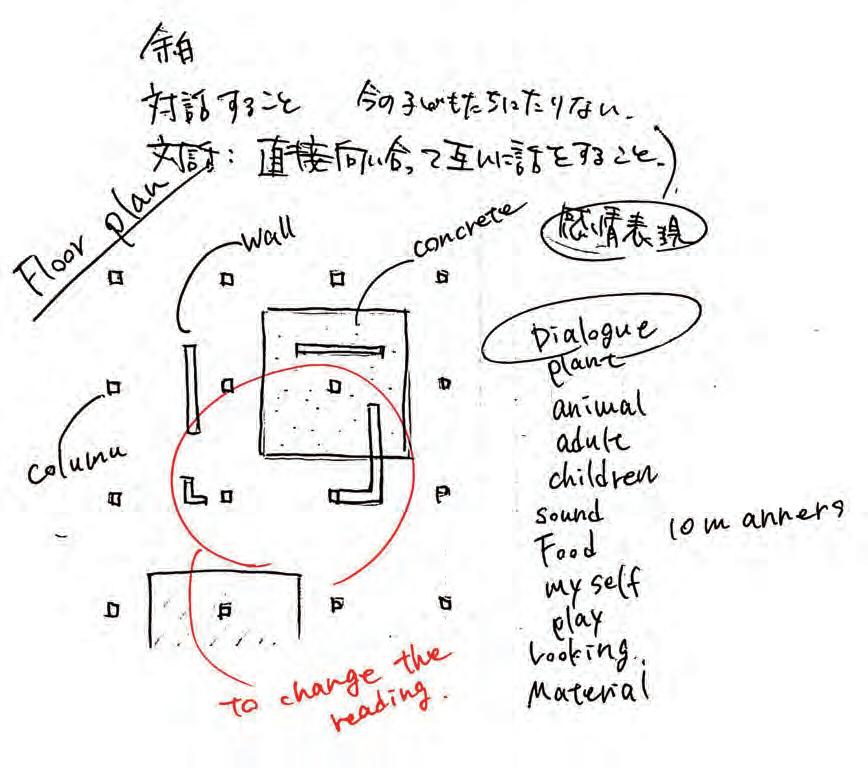 余白
対話すること 今の子どもたちにたりない.
対話: 直接向い合って互いに話をすること.
感情表現
Floor plan
wall
concrete
column
Dialogue
plant
animal
adult
children
sound
Food
my self
play
Looking.
Material
10 manners
to change the
reading.